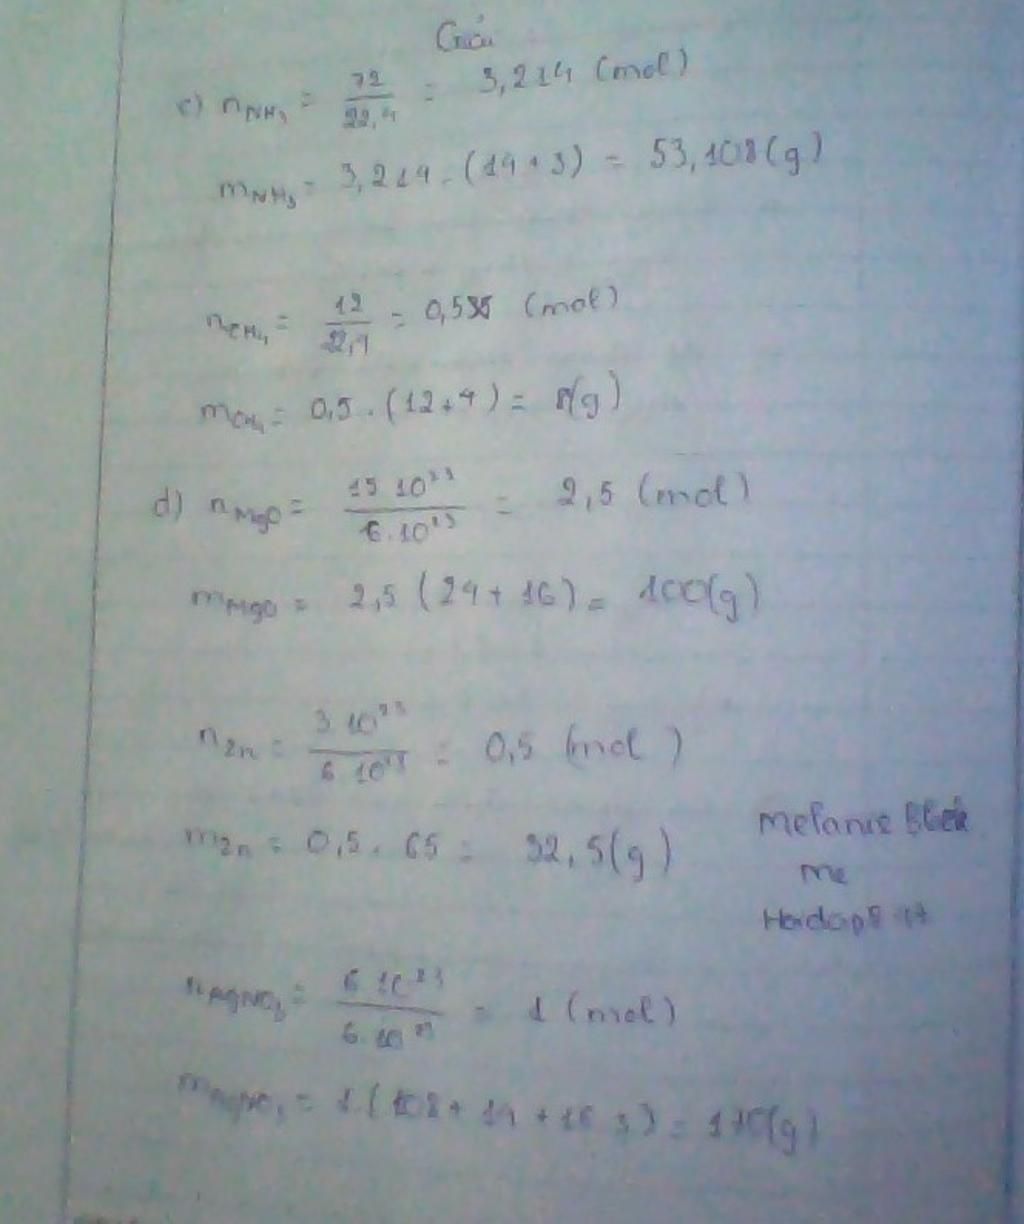 Giải
c) nNH₃ = 72/22,4 = 3,214 (mol)
mNH₃ = 3,214 . (14 + 3) = 53,108 (g)
nCH₄ = 12/22,4 = 0,535 (mol)
mCH₄ = 0,5 . (12 + 4) = 8 (g)
d) nMgO = 15 10²³/6 . 10²³ = 2,5 (mol)
mMgO = 2,5 (24 + 16) = 100 (g)
nZn = 3 10²³/6 10²³ = 0,5 (mol)
mZn = 0,5 . 65 = 32,5 (g)
Melanie
me
nAgNO₃ = 6 10²³/6 . 10²³ = 1 (mol)
mAgNO₃ = 1 . (108 + 14 + 16 3) = 170 (g)